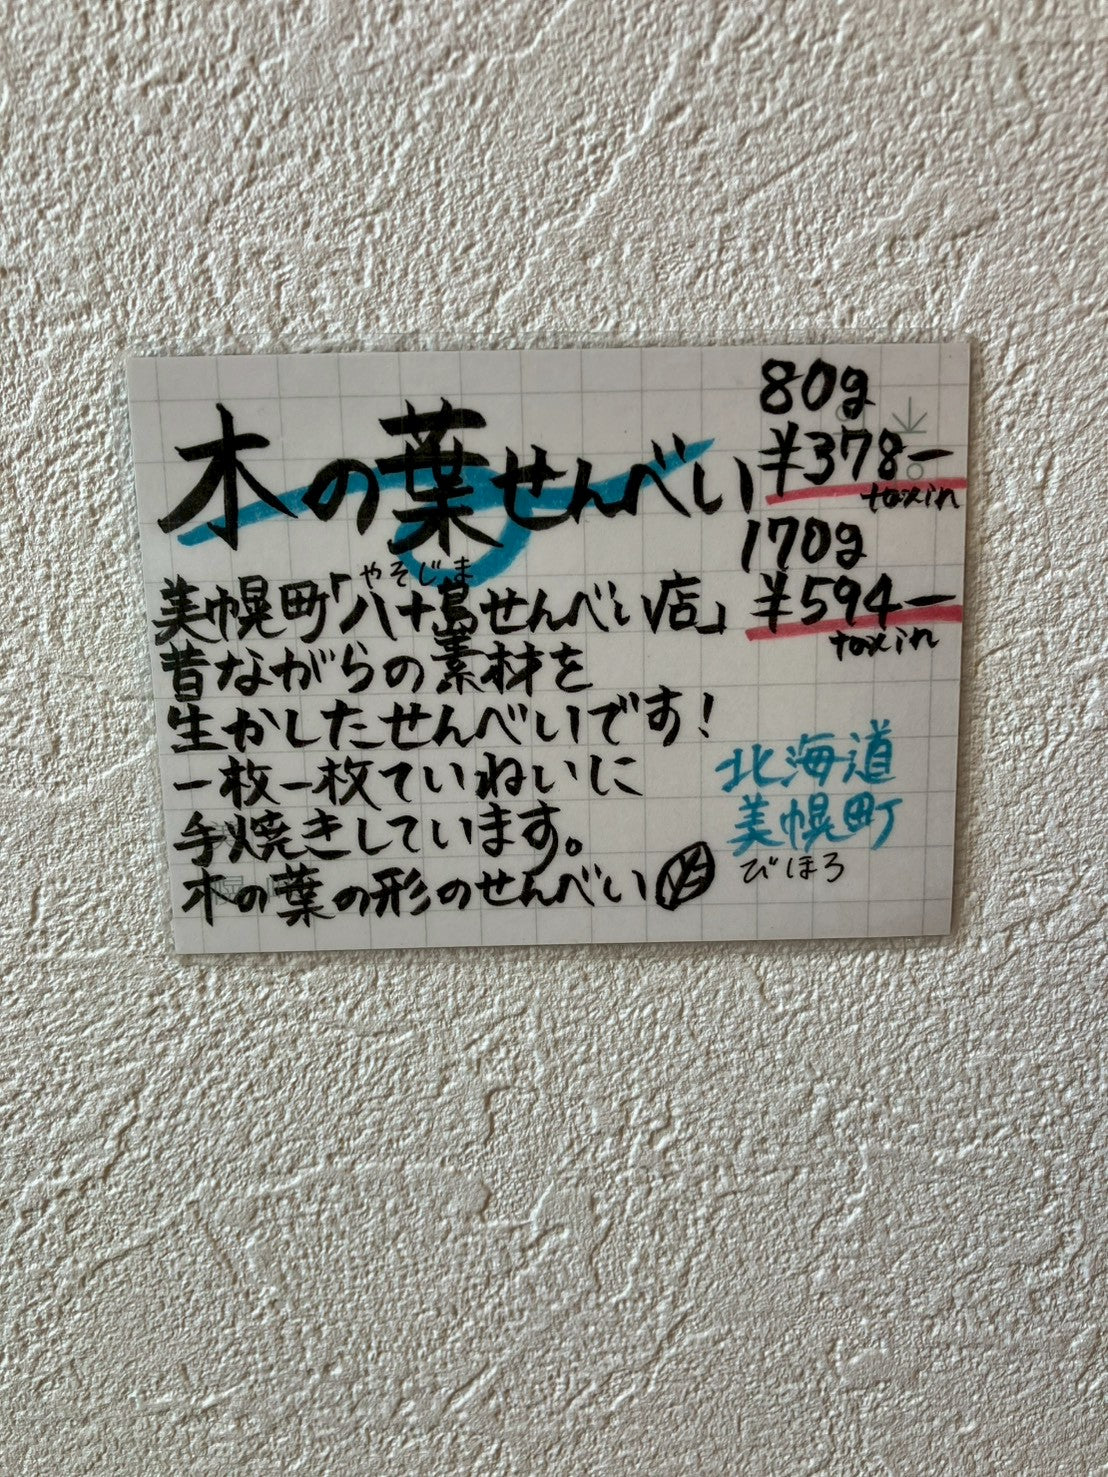 木の葉せんべい
80g
¥378-
taxin
170g
¥594-
taxin
やそじま
美幌町「八十島せんべい店」
昔ながらの素材を
生かしたせんべいです!
一枚一枚ていねいに
手焼きしています。
木の葉の形のせんべい
北海道
美幌町
びほろ